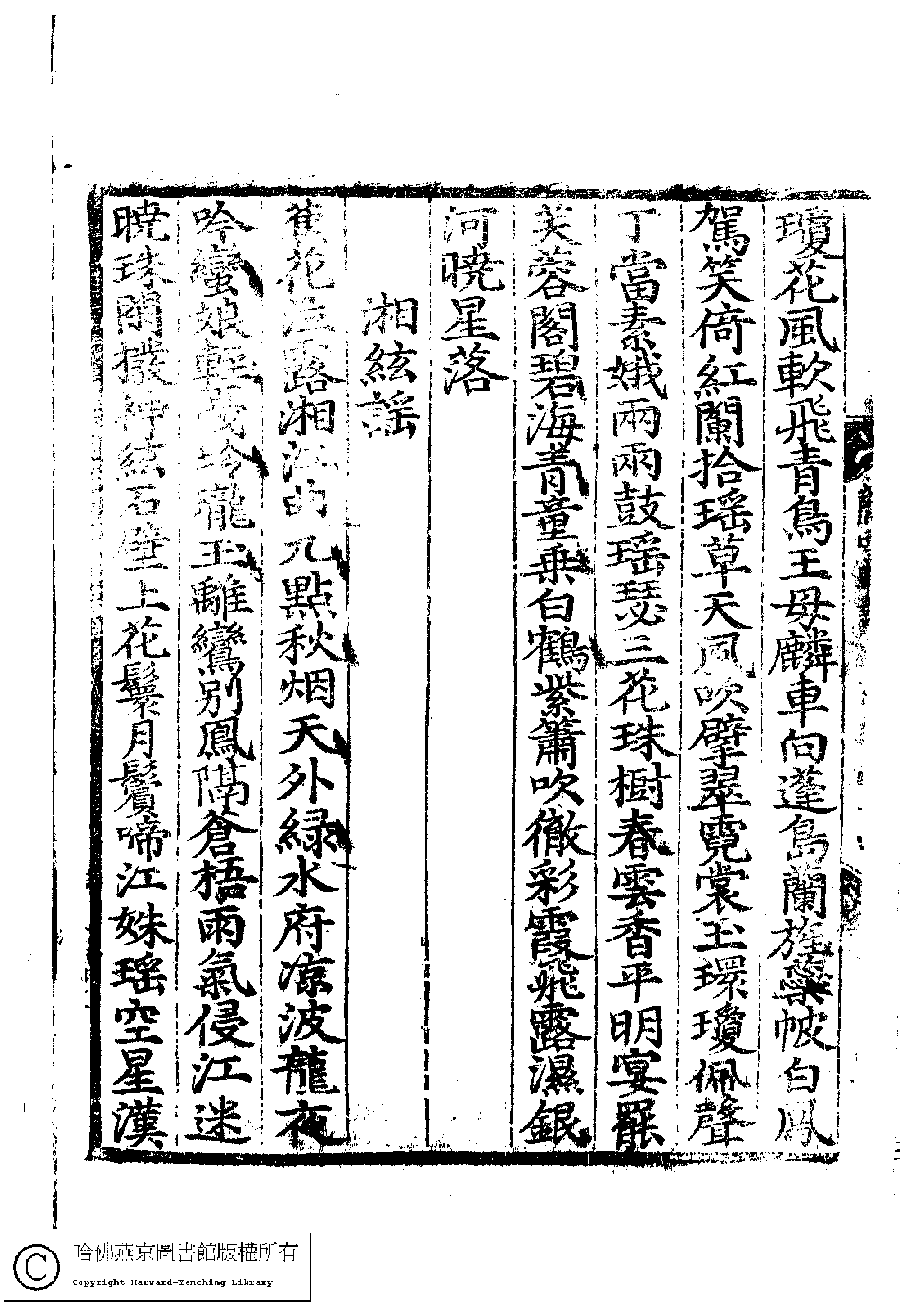 瓊花風軟飛青鳥王母麟車向蓬島蘭旌蘂帔白鳳
駕笑倚紅闌拾瑶草天風吹擘翠霓裳玉環瓊佩聲
丁當素娥兩兩鼓瑶瑟三花珠樹春雲香平明宴罷
芙蓉閣碧海青童乗白鶴紫簫吹徹彩霞飛露濕銀
河曉星落
湘絃謡
蕉花泣露湘江曲九點秋烟天外緑水府凉波龍夜
吟蠻娘輕戞玲瓏玉離鸞別鳳隔蒼梧雨氣侵江迷
曉珠閑撥神絃石壁上花鬟月鬢啼江姝瑶空星漢
哈佛燕京圖書館版權所有
Copyright Harvard-Yenching Library